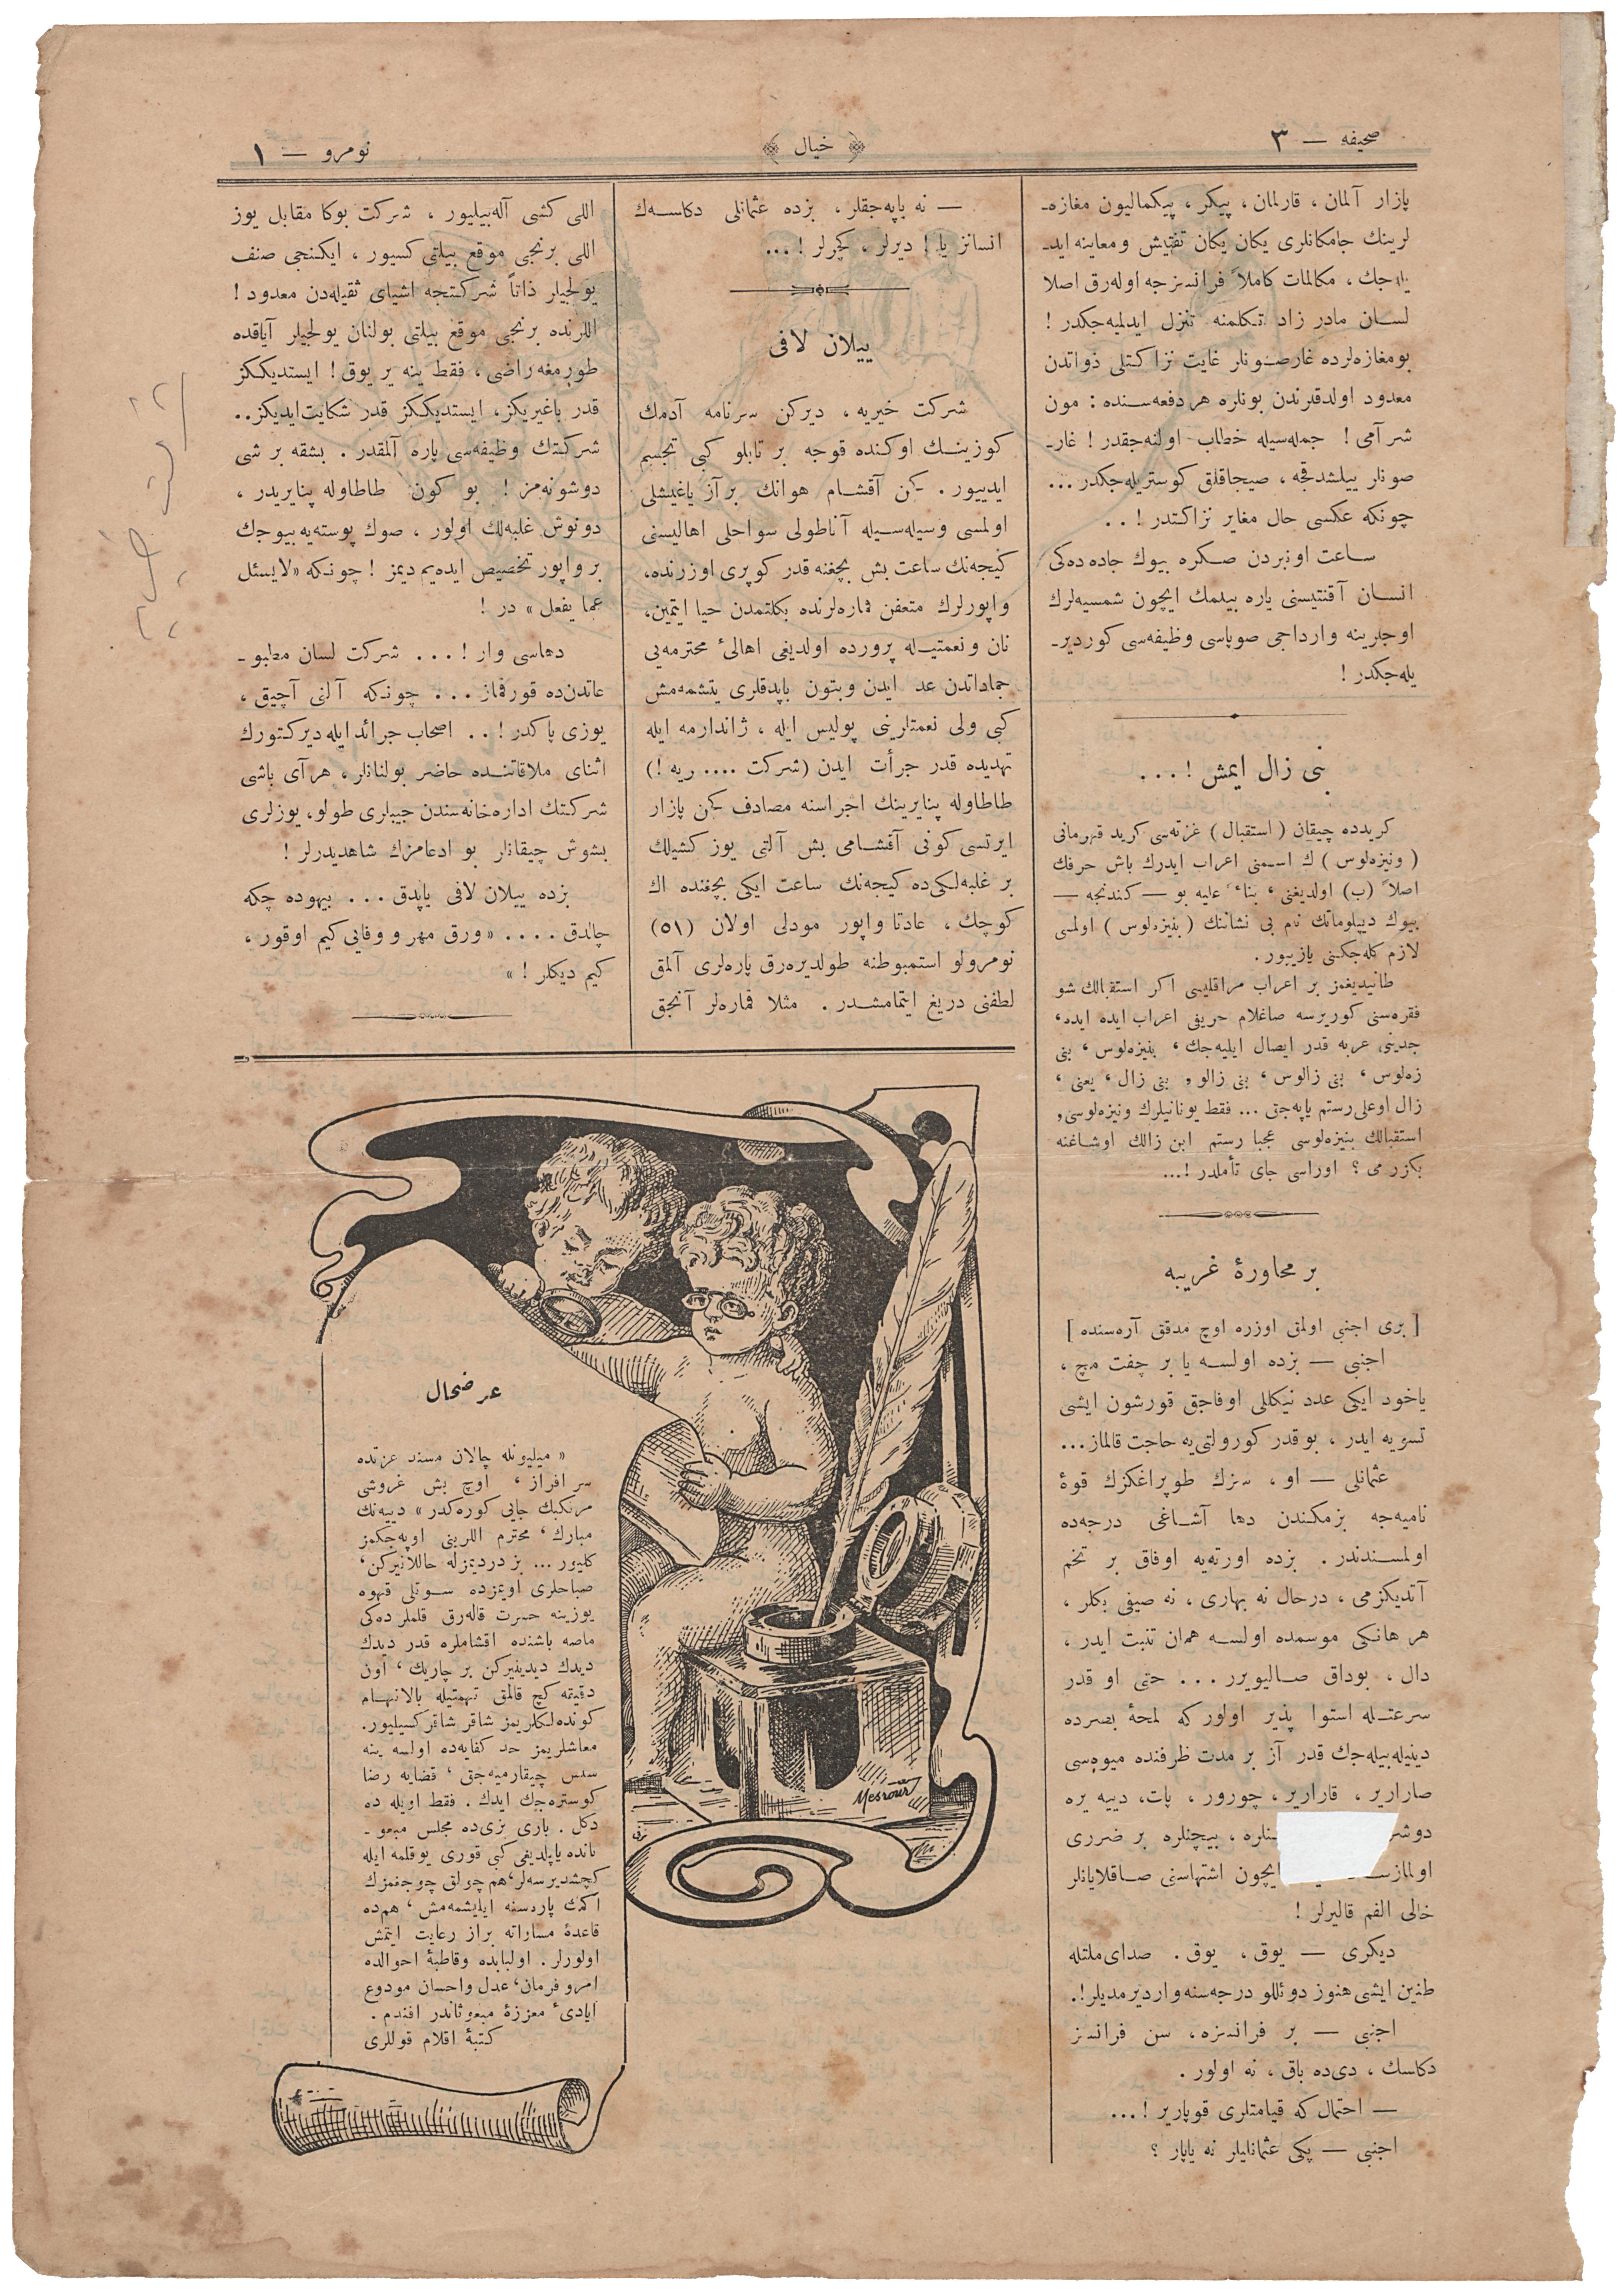 صحيفه — ٣
خيال
نومرو — ١
پازار آلمان، قارلمان، پيكر، پيكماليون مغازه‌ـ
لرينك جامكانلرى يكان يكان تفتيش ومعاينه ايد‌ـ
جك، مكالمات كاملاً فرانسزجه اوله‌رق اصلا
لسان مادر زاد تكلمنه تنزل ايدلميه‌جكدر!
بومغازه‌لرده غارصونلر غايت نزاكتلى ذواتدن
معدود اولدقلرندن بونلره هر دفعه‌سنده: مون
شر آمى! جمله‌سيله خطاب اولنه‌جقدر! غار‌ـ
صونلر بيلشدقجه، صيجاقلق كوستريله‌جكدر...
چونكه عكسى حال مغاير نزاكتدر!..
ساعت اونبردن صكره بيوك جاده‌ده‌كى
انسان آقنتيسنى ياره بيلمك ايچون شمسيه‌لرك
اوجلرينه وارداجى صوپاسى وظيفه‌سى كورديرـ
يله‌جكدر!
بنى زال ايمش!...
كريدده چيقان (استقبال) غزته‌سى كريد قهرمانى
(ونيزه‌لوس) ك اسمنى اعراب ايدرك باش حرفك
اصلاً (ب) اولديغنى، بناءً عليه بو — كندنجه —
بيوك ديپلوماتك نام بى نشاننك (بنيزه‌لوس) اولمسى
لازم كله‌جكنى يازييور.
طانيديغمز بر اعراب مراقليسى اكر استقبالك شو
فقره‌سنى كوريرسه صاغلام حريفى اعراب ايده ايده،
جدينى عربه قدر ايصال ايليه‌جك، بنيزه‌لوس، بنى
زه‌لوس، بنى زالوس، بنى زالو، بنى زال، يعنى،
زال اوغلى رستم ياپه‌جق... فقط يونانيلرك ونيزه‌لوسى،
استقبالك بنيزه‌لوسى عجبا رستم ابن زالك اوشاغنه
بكزر مى؟ اوراسى جاى تأملدر!...
بر محاورۀ غريبه
[برى اجنبى اولمق اوزره اوچ مدقق آره‌سنده]
اجنبى — بزده اولسه يا بر چفت مچ،
ياخود ايكى عدد نيكللى اوفاجق قورشون ايشى
تسويه ايدر، بو قدر كورولتى‌يه حاجت قالماز...
عثمانلى — او، سزك طوپراغكزك قوۀ
ناميه‌جه بزمكندن دها آشاغى درجه‌ده
اولمسندندر. بزده اورته‌يه اوفاق بر تخم
آتديكزمى، درحال نه بهارى، نه صيفى بكلر،
هر هانكى موسمده اولسه همان تنبت ايدر،
دال، بوداق صاليويرر... حتى او قدر
سرعتله استوا پذير اولور كه لمحۀ بصرده
دينيله‌بيله‌جك قدر آز بر مدت ظرفنده ميوه‌سى
صارارير، قارارير، چورور، پات، دييه يره
دوشر ـنلره، بيچنلره بر ضررى
اولمازسه ايچون اشتهاسنى صاقلايانلر
خالى الفم قاليرلر!
ديكرى — يوق، يوق. صداى ملتله
طنين ايشى هنوز دوئللو درجه‌سنه وارديرمديلر!.
اجنبى — بر فرانسزه، سن فرانسز
دكلسك، دى‌ده باق، نه اولور.
— احتمال كه قيامتلرى قوپارير!...
اجنبى — پكى عثمانليلر نه ياپار؟
— نه ياپه‌جقلر، بزده عثمانلى دكلسه‌ك
انسانز يا! ديرلر، كچرلر!...
ييلان لافى
شركت خيريه، ديركن سرنامه آدمك
كوزينك اوكنده قوجه بر تابلو كبى تجسم
ايدييور. كن آقشام هوانك بر آز ياغيشلى
اولمسى وسيله‌سيله آناطولى سواحلى اهاليسنى
كيجه‌نك ساعت بش بچغنه قدر كوپرى اوزرنده،
واپورلرك متعفن قماره‌لرنده بكلتمدن حيا ايتمين،
نان ونعمتيله پرورده اولديغى اهالئ محترمه‌يى
جماداتدن عد ايدن وبتون ياپدقلرى يتشمه‌مش
كبى ولى نعمتلرينى پوليس ايله، ژاندارمه ايله
تهديده قدر جرأت ايدن (شركت .... ريه!)
طاطاوله پنايرينك اجراسنه مصادف كن پازار
ايرتسى كونى آقشامى بش آلتى يوز كشيلك
بر غلبه‌لكى‌ده كيجه‌نك ساعت ايكى بچغنده اك
كوچك، عادتا واپور مودلى اولان (٥١)
نومرولو استمبوطنه طولديره‌رق پاره‌لرى آلمق
لطفنى دريغ ايتمامشدر. مثلا قماره‌لر آنجق
اللى كشى آله‌بيليور، شركت بوكا مقابل يوز
اللى برنجى موقع بيلتى كسيور، ايكنجى صنف
يولجيلر ذاتاً شركتجه اشياى ثقيله‌دن معدود!
اللرنده برنجى موقع بيلتى بولنان يولجيلر آياقده
طورمغه راضى، فقط ينه ير يوق! ايستديككز
قدر باغيريكز، ايستديككز قدر شكايت ايديكز..
شركتك وظيفه‌سى پاره آلمقدر. بشقه بر شى
دوشونه‌مز! بو كون طاطاوله پنايريدر،
دونوش غلبه‌لك اولور، صوك پوسته‌يه بيوجك
بر واپور تخصيص ايده‌يم ديمز! چونكه «لايسئل
عما يفعل» در!
دهاسى وار!... شركت لسان مطبو‌ـ
عاتدن‌ده قورقماز... چونكه آلنى آچيق،
يوزى پاكدر!.. اصحاب جرائد ايله ديركتورك
اثناى ملاقاتنده حاضر بولنانلر، هر آى باشى
شركتك اداره‌خانه‌سندن جيبلرى طولو، يوزلرى
بشوش چيقانلر بو ادعامزك شاهديدرلر!
بزده ييلان لافى ياپدق... بيهوده چكه
چالدق.... «ورق مهر و وفايى كيم اوقور،
كيم ديكلر!»
عرضحال
«ميليونله چالان مسند عزتده
سر افراز، اوچ بش غروشى
مرتكبك جايى كوره‌كدر» دييه‌نك
مبارك، محترم اللرينى اوپه‌جكمز
كليور... بز درديمزله حاللانيركن،
صباحلرى اويمزده سوتلى قهوه
يوزينه حسرت قاله‌رق قلملرده‌كى
ماصه باشنده اقشاملره قدر ديدك
ديدك ديدينيركن بر چاريك، اون
دقيقه كچ قالمق تهمتيله بالاتهام
كونده‌لكلريمز شاقر شاقر كسيليور.
معاشلريمز حد كفايه‌ده اولسه ينه
سس چيقارميه‌جق، قضايه رضا
كوستره‌جك ايدك. فقط اويله ده
دكل. بارى بزى‌ده مجلس مبعو‌ـ
ثانده ياپلديغى كبى قورى يوقلمه ايله
كچشديرسه‌لر، هم چولق چوجغمزك
اكمك پاره‌سنه ايليشمه‌مش، هم‌ده
قاعدۀ مساواته براز رعايت ايتمش
اولورلر. اولبابده وقاطبۀ احوالده
امر و فرمان، عدل واحسان مودوع
ايادئ معززۀ مبعوثاندر افندم.
كتبۀ اقلام قوللرى
Mesrour